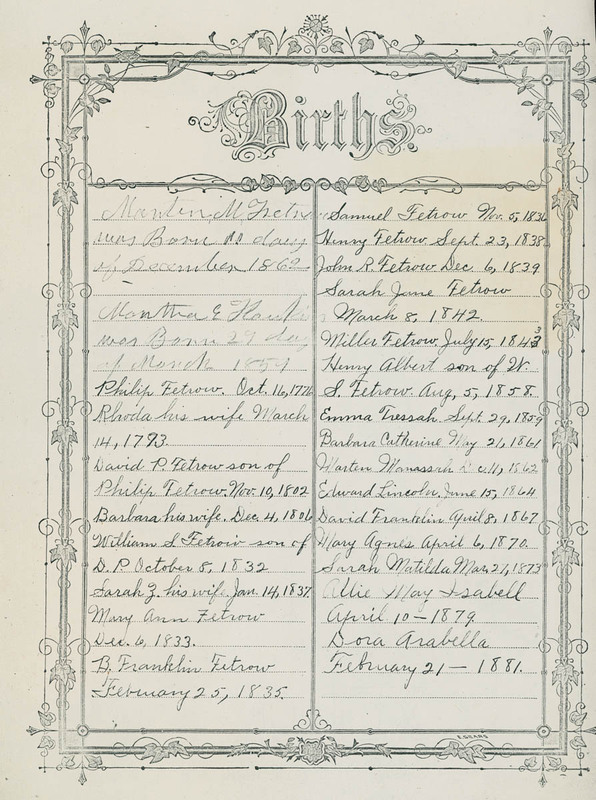 Births.
Martin M Fetrow
was Born 10 day
of December 1862
Martha E
was Born 29 day
of March 1859
Philip Fetrow. Oct. 16, 1776
Rhoda his wife March
14, 1793.
David P. Fetrow son of
Philip Fetrow. Nov. 10, 1802
Barbara his wife. Dec. 4, 1806
William S. Fetrow son of
D. P. October 8, 1832
Sarah Z. his wife. Jan. 14, 1837
Mary Ann Fetrow
Dec. 6, 1833.
B. Franklin Fetrow
February 25, 1835.
Samuel Fetrow Nov. 5, 1836
Henry Fetrow Sept. 23, 1838
John R. Fetrow Dec. 6, 1839
Sarah Jane Fetrow
March 8, 1842.
Miller Fetrow. July 15, 1843
Henry Albert son of W.
S. Fetrow. Aug. 5, 1858.
Emma Tressah. Sept. 29, 1859
Barbara Catherine May 21, 1861
Marten Manassah Dec. 11, 1862
Edward Lincoln, June 15, 1864
David Franklin April 8, 1867
Mary Agnes April 6, 1870.
Sarah Matilda Mar. 21, 1873
Allie May Isabell
April 10 — 1879.
Dora Arabella
February 21 — 1881.
E. SEARS